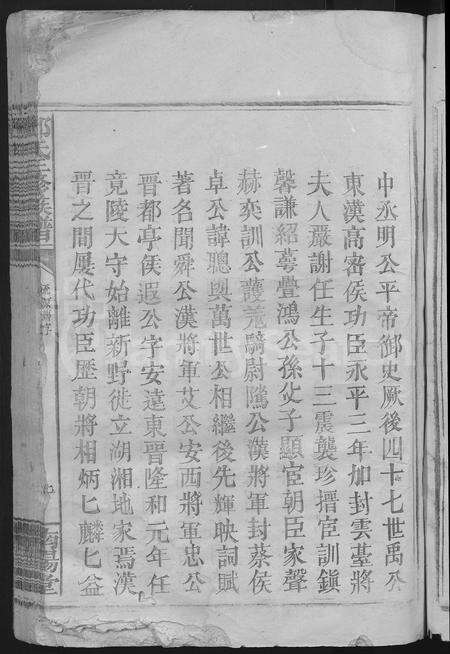 中丞明公平帝御史厥後四十七世禹公
東漢高密侯功臣永平三年加封雲臺將
夫人嚴謝任生子十三震襲珍搢宦訓鎮
馨謙紹蕚豊鴻公孫父子顯宦朝臣家聲
赫奕訓公護羗騎尉隲公漢將軍封蔡侯
卓公諱聰與萬世公相繼後先輝映詞賦
著名聞舜公漢將軍艾公安西將軍忠公
晉都亭侯遐公字安遠東晉隆和元年任
竟陵大守始離新野徙立湖湘地家焉漢
晉之間屢代功臣歷朝將相炳匕麟匕益
氏三修族譜
南陽堂